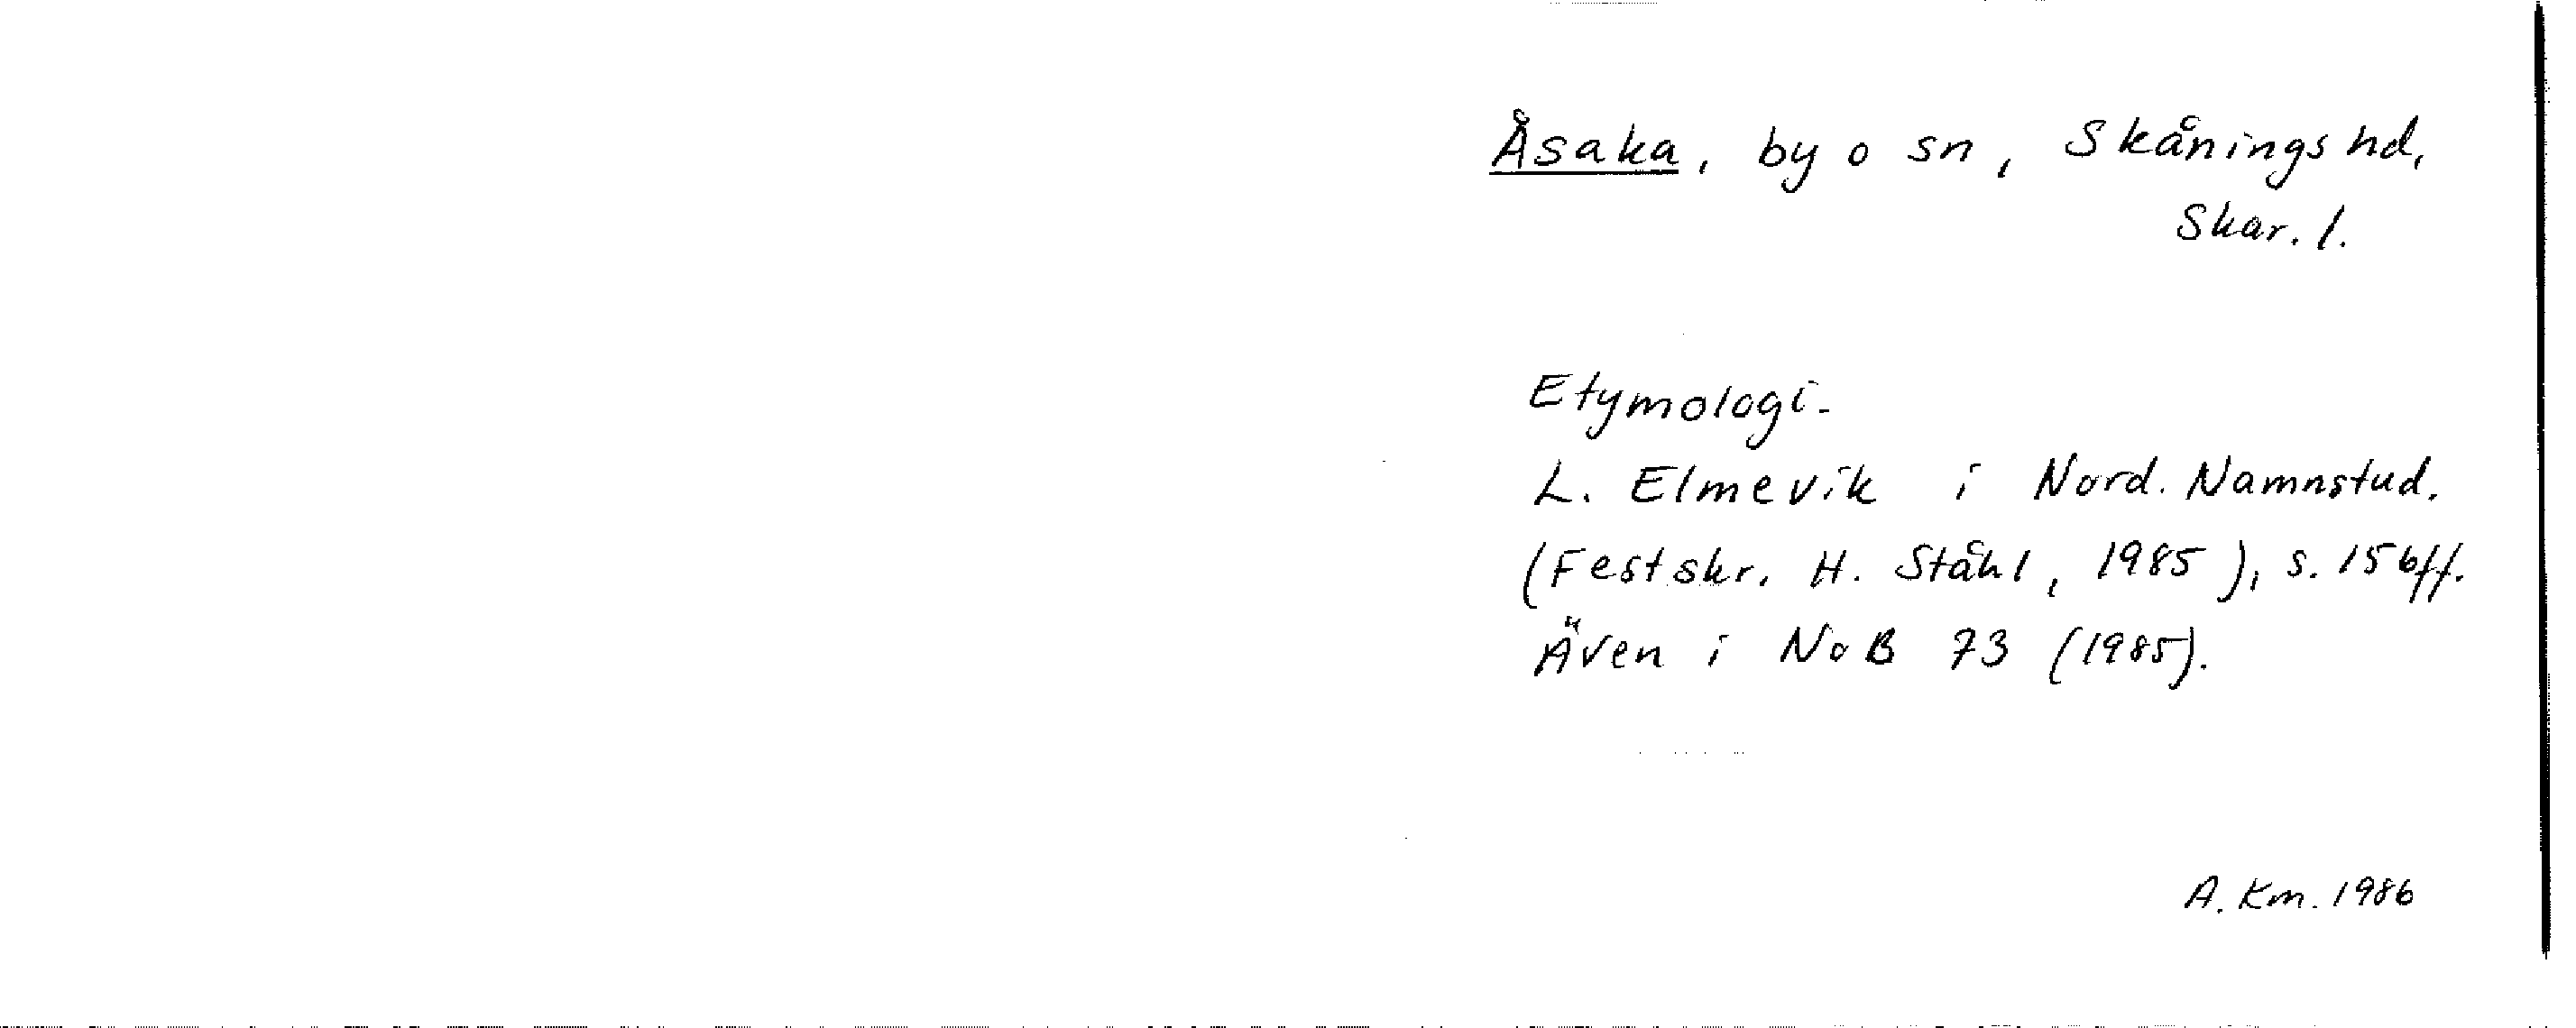 Åsaka, by o sn, Skånings hd,
Skar. l.
Etymologi.
L. Elmevik i Nord. Namnstud.
(Festskr. H. Ståhl, 1985), s. 156ff.
Även i NoB 73 (1985).
A. Km. 1986